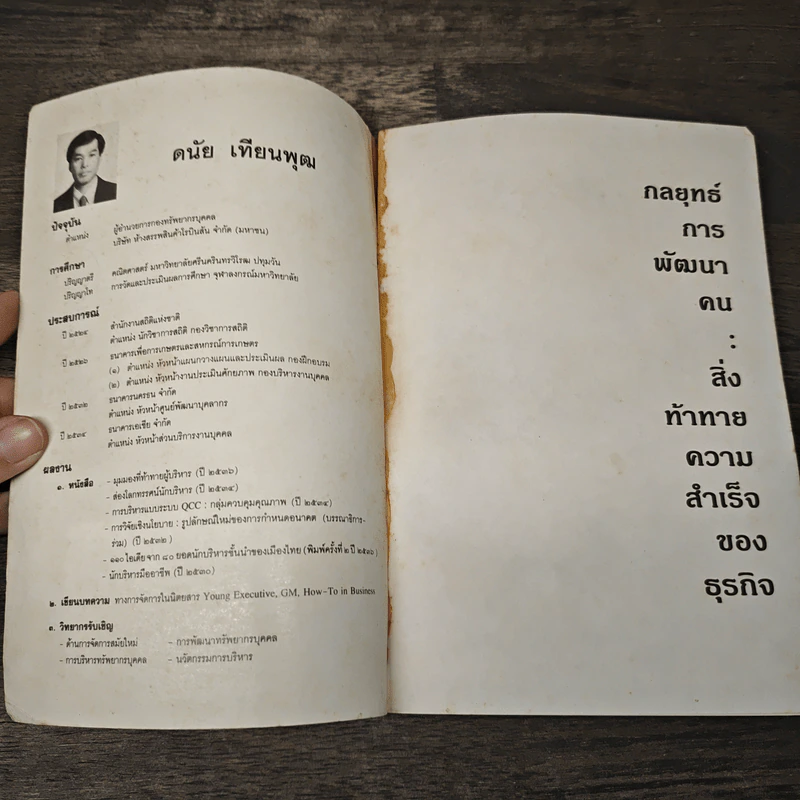 ดนัย เทียนพุฒ
ปัจจุบัน
ตำแหน่ง ผู้อำนวยการกองทรัพยากรบุคคล
บริษัท ห้างสรรพสินค้าโรบินสัน จำกัด (มหาชน)
การศึกษา
ปริญญาตรี คณิตศาสตร์ มหาวิทยาลัยศรีนครินทรวิโรฒ ปทุมวัน
ปริญญาโท การวัดและประเมินผลการศึกษา จุฬาลงกรณ์มหาวิทยาลัย
ประสบการณ์
ปี ๒๕๒๔ สำนักงานสถิติแห่งชาติ
ตำแหน่ง นักวิชาการสถิติ กองวิชาการสถิติ
ปี ๒๕๒๖ ธนาคารเพื่อการเกษตรและสหกรณ์การเกษตร
(๑) ตำแหน่ง หัวหน้าแผนกวางแผนและประเมินผล กองฝึกอบรม
(๒) ตำแหน่ง หัวหน้างานประเมินศักยภาพ กองบริหารงานบุคคล
ปี ๒๕๓๒ ธนาคารนครธน จำกัด
ตำแหน่ง หัวหน้าศูนย์พัฒนาบุคลากร
ปี ๒๕๓๔ ธนาคารเอเชีย จำกัด
ตำแหน่ง หัวหน้าส่วนบริการงานบุคคล
ผลงาน
๑. หนังสือ - มุมมองที่ท้าทายผู้บริหาร (ปี ๒๕๓๖)
- ส่องโลกทรรศน์นักบริหาร (ปี ๒๕๓๔)
- การบริหารแบบระบบ QCC : กลุ่มควบคุมคุณภาพ (ปี ๒๕๓๔)
- การวิจัยเชิงนโยบาย : รูปลักษณ์ใหม่ของการกำหนดอนาคต (บรรณาธิการ-
ร่วม) (ปี ๒๕๓๒)
- ๑๑๐ ไอเดียจาก ๘๐ ยอดนักบริหารชั้นนำของเมืองไทย (พิมพ์ครั้งที่ ๒ ปี ๒๕๓๖)
- นักบริหารมืออาชีพ (ปี ๒๕๓๐)
๒. เขียนบทความ ทางการจัดการในนิตยสาร Young Executive, GM, How-To in Business
๓. วิทยากรรับเชิญ
- ด้านการจัดการสมัยใหม่ - การพัฒนาทรัพยากรบุคคล
- การบริหารทรัพยากรบุคคล - นวัตกรรมการบริหาร
กลยุทธ์
การ
พัฒนา
คน
:
สิ่ง
ท้าทาย
ความ
สำเร็จ
ของ
ธุรกิจ